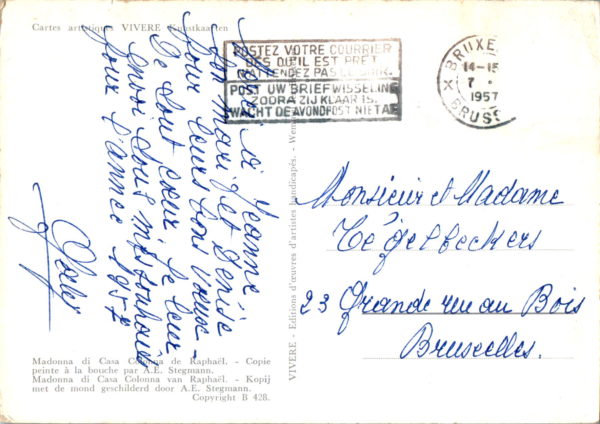 Cartes artistiques VIVERE Kunstkaarten
POSTEZ VOTRE COURRIER
DES QU'IL EST PRÊT
N'ATTENDEZ PAS LE SOIR.
POST UW BRIEFWISSELING
ZOODRA ZIJ KLAAR IS.
WACHT DE AVONDPOST NIET AF
BRUXE
14-15
7
1957
BRUSS
X
Merci à Jeanne
son mari et Denise
pour leurs bons voeux
De tout coeur je leur
envoi tous mes souhaits
pour l'année 1957
VIVERE - Editions d'œuvres d'artistes handicapés.
Monsieur et Madame
Té Gelbeckers
23 Grande rue au Bois
Bruxelles.
Madonna di Casa Colonna de Raphaël. - Copie
peinte à la bouche par A.E. Stegmann.
Madonna di Casa Colonna van Raphaël. - Kopij
met de mond geschilderd door A.E. Stegmann.
Copyright B 428.